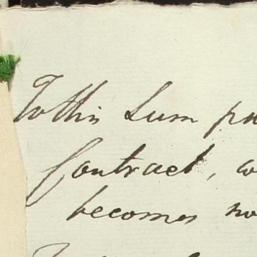 To this Sum
Contract,
becomes